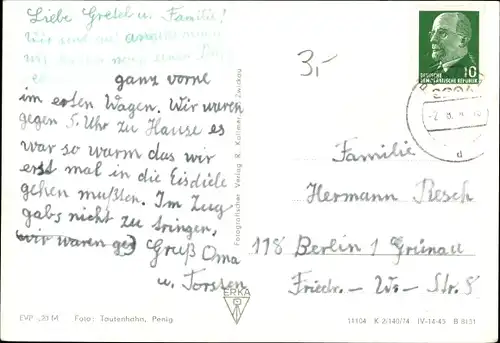 Liebe Gretel u. Familie!
Wir sind gut
ganz vorne
im ersten Wagen. Wir waren
gegen 5. Uhr zu Hause es
war so warm das wir
erst mal in die Eisdiele
gehen mußten. Im Zug
gabs nicht zu tringen,
wir waren ge
Gruß Oma
u. Torsten
3,-
10
DEUTSCHE
DEMOKRATISCHE REPUBLIK
d
Familie
Hermann Resch
118 Berlin / Grünau
Friedr.- Wo- Str. 8
Fotografischer Verlag R. Kallmer, Zwickau
ERKA
EVP -,20 M Foto: Tautenhahn, Penig
11104 K 2/140/74 IV-14-45 B 8131